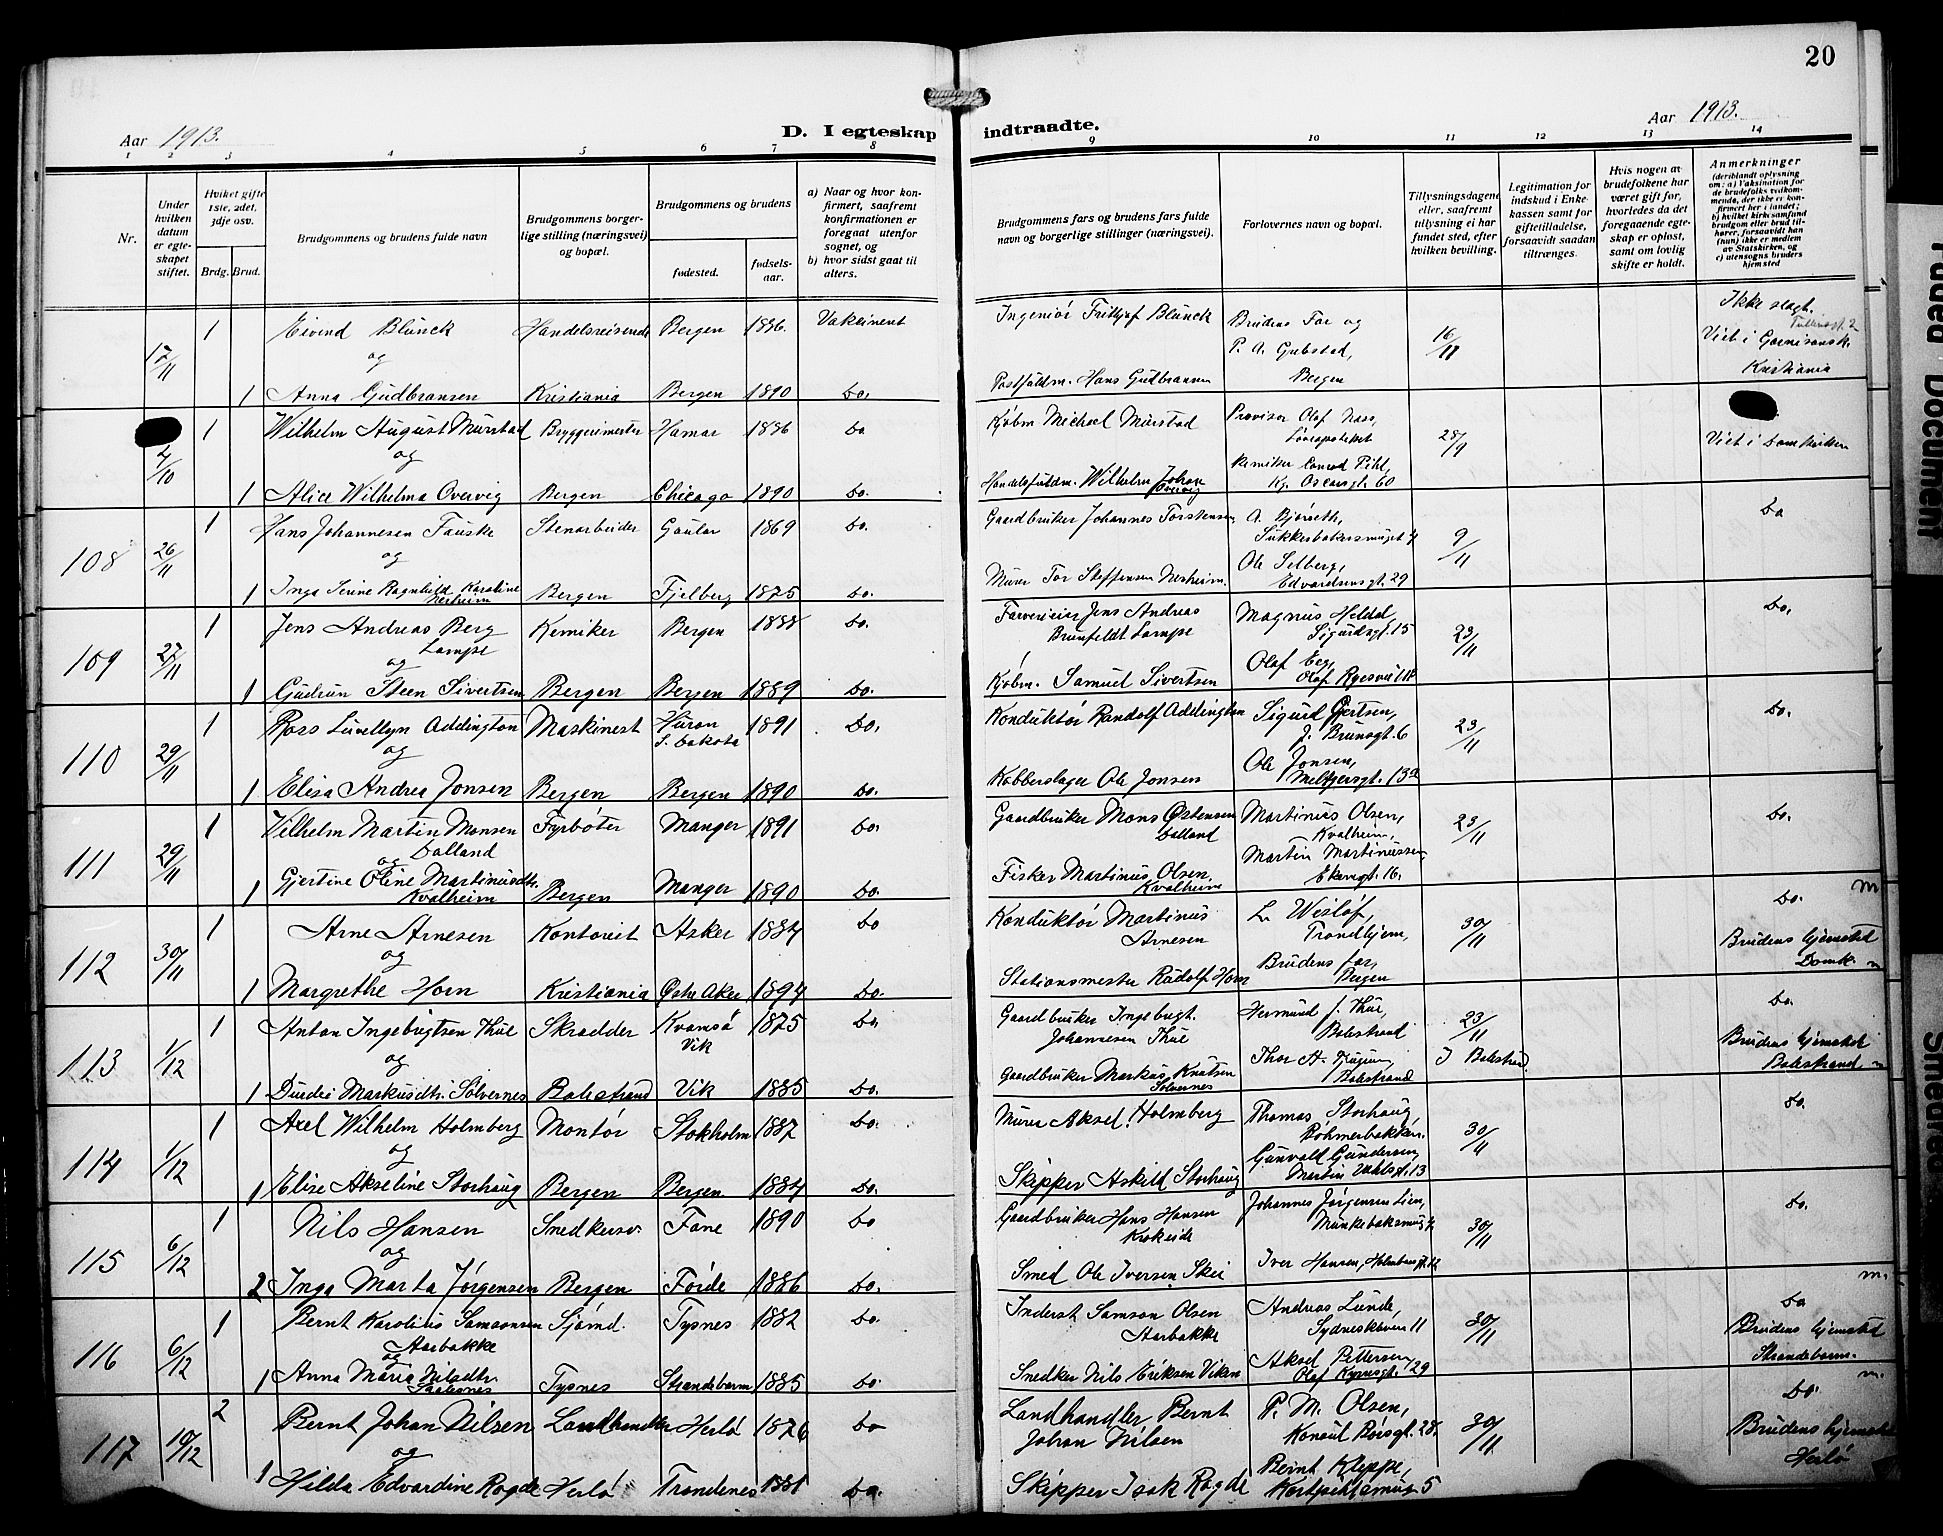 20
Aar 1913.
D. I egteskap indtraadte.
Aar 1913.
1 2 3 4 5 6 7 8 9 10 11 12 13 14
Nr.
Under hvilken datum er egteskapet stiftet.
Hvilket gifte 1ste, 2det, 3dje osv.
Brdg. Brud.
Brudgommens og brudens fulde navn
Brudgommens borgerlige stilling (næringsvei) og bopæl.
Brudgommens og brudens
fødested.
fødselsaar.
a) Naar og hvor konfirmert, saafremt konfirmationen er foregaat utenfor sognet, og
b) hvor sidst gaat til alters.
Brudgommens fars og brudens fars fulde navn og borgerlige stillinger (næringsvei).
Forlovernes navn og bopæl.
Tillysningsdagene eller, saafremt tillysning ei har fundet sted, efter hvilken bevilling.
Legitimation for indskud i Enkekassen samt for giftetilladelse, forsaavidt saadan tiltrænges.
Hvis nogen av brudefolkene har været gift før, hvorledes da det foregaaende egteskap er opløst, samt om lovlig skifte er holdt.
Anmerkninger
(deriblandt oplysning om: a) Vaksination for de brudefolks vedkommende, der ikke er konfirmert her i landet; b) hvilket kirkesamfund brudgom eller brud tilhører, forsaavidt han (hun) ikke er medlem av Statskirken, og c) utensogns bruders hjemsted
17/11 1 Eivind Blunck Handelsreisende Bergen 1886. Vaksinert Ingeniør Fritljof Blunck Brudens Far og 16/11 Ikke slagt.
og P. A. Gubstad, Viet i Garnisonsk.
1 Anna Gudbransen Kristiania Bergen 1890 Do. Postfuldm. Hans Gudbransen Bergen Kristiania
4/10 1 Wilhelm August Murstad Bryggerimester Hamar 1886 Do Kjøbm Michael Murstad Provisor Olaf Nass, Løveapoteket 28/9 Viet i Domkirken
og Kemiker Conrad Pihl,
1 Alice Wilhelma Overvig Bergen Chicago 1890 Do. Handelsfuldm. Wilhelm Johan Overvig Kg. Oscarsgt. 60
108 26/11 1 Hans Johannesen Fauske Stenarbeider Gaular 1869 Do. Gaardbruker Johannes Torstensen A. Bjørseth, Sukkerbakersmuget 4 9/11 Do
og Ole Selberg,
1 Inga Serine Ragnhild Karoline Nesheim Bergen Fjelberg 1875 Do. Murer Tor Steffensen Nesheim. Edvardsensgt. 29
109 27/11 1 Jens Andreas Berg Lampe Kemiker Bergen 1888 Do. Farverieier Jens Andreas Brunfeldt Lampe Magnus Heldal, Sigurdsgt. 15 23/11 Do.
og Olaf Eeg,
1 Gudrun Steen Sivertsen Bergen Bergen 1889 Do. Kjøbm. Samuel Sivertsen Olaf Ryesvei 18
110 29/11 1 Ross Luvellyn Addington Maskinest Huron S. Dakota 1891 Do. Konduktør Randolf Addington Sigurd Gjertsen, J. Brunsgt. 6 23/11 Do.
og Ole Jonsen,
1 Elisa Andrea Jonsen Bergen Bergen 1890 Do. Kobberslager Ole Jonsen Meltzersgt. 13a
111 29/11 1 Vilhelm Martin Monsen Dalland Fyrbøter Manger 1891 Do. Gaardbruker Mons Østensen Dalland Martinus Olsen, Kvalheim, 23/11 Do.
og Martin Martinussen,
1 Gjertine Oline Martinusdtr. Kvalheim Bergen Manger 1890 Do. Fisker Martinus Olsen Kvalheim Ekerngt. 16. m
112 30/11 1 Arne Arnesen Kontorist Asker 1884 Do Konduktør Martinus Arnesen L. Wisløf, Trondhjem, 30/11 Do.
og Brudens far, Brudens hjemsted
1 Margrethe Horn Kristiania Østre Aker 1894 Do. Stationsmester Rudolf Horn Bergen Domk.
113 1/12 1 Anton Ingebrigtsen Thue Skrædder Kvamsø Vik 1875 Do. Gaardbruker Ingebrigt. Johannesen Thue Hermund J. Thue, Balestrand 23/11 Do.
og Thor A. I Balestrand Brudens hjemsted
1 Durdei Markusdtr. Solvernes Balestrand Vik 1885 Do. Gaardbruker Markus Knutsen Solvernes Balestrand Balestrand
114 1/12 1 Axel Wilhelm Holmberg Montør Stokholm 1887 Do. Murer Aksel Holmberg Thomas Storhaug, Røhmerbakken. 30/11 Do.
og Gunvald Gundersen,
1 Elise Akseline Storhaug Bergen Bergen 1884 Do. Skipper Askild Storhaug Martin Vahlsgt. 13
115 6/12 1 Nils Hansen Snedkersv. Fane 1890 Do Gaardbruker Hans Hansen Krokeide Johannes Jørgensen Lien, 30/11 Do.
og
2 Inga Marta Jørgensen Bergen Førde 1886 Do. Smed Ole Iversen Skei Iver Hansen, m.
116 6/12 1 Bernt Karolius Samsonsen Aarbakke Sjømd. Tysnes 1882 Do. Inderst Samson Olsen Aarbakke Andreas Lunde, Sydneskleven 11 30/11 Do
og Aksel Pettersen, Brudens hjemsted
1 Anna Maria Nilsdtr. Tysnes Strandebarm 1885 Do. Snedker Nils Eriksen Viken Olaf Kyrresgt. 29 Strandebarm. m.
117 10/12 2 Bernt Johan Nilsen Landhandler Herlø 1876 Do Landhandler Bernt Johan Nilsen P. M. Olsen, Konsul Børsgt. 28. 30/11 Do.
og Bernt Kleppe, Brudens hjemsted
1 Hilda Edvardine Rogde Herlø Trondenes 1881 Do. Skipper Isak Rogde 5 Herlø
Faded Document
Smeared